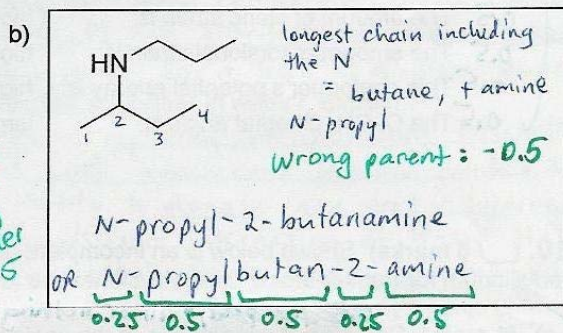 b)
longest chain including
the N
= butane, + amine
N-propyl
wrong parent : -0.5
HN
1 2 3 4
N-propyl-2-butanamine
OR N-propylbutan-2-amine
0.25 0.5 0.5 0.25 0.5